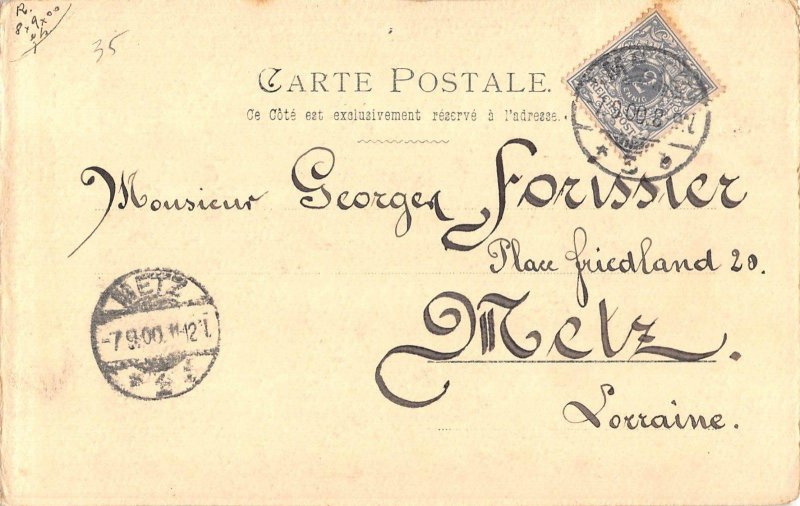 R.
8 x 9 x 00
35
CARTE POSTALE.
Ce Côté est exclusivement réservé à l'adresse.
2
REICHSPOST
9.00.8
Monsieur Georges Forissier
Place friedland 20.
Metz.
Lorraine.
METZ
-7.9.00.11-12V.
* 2 *